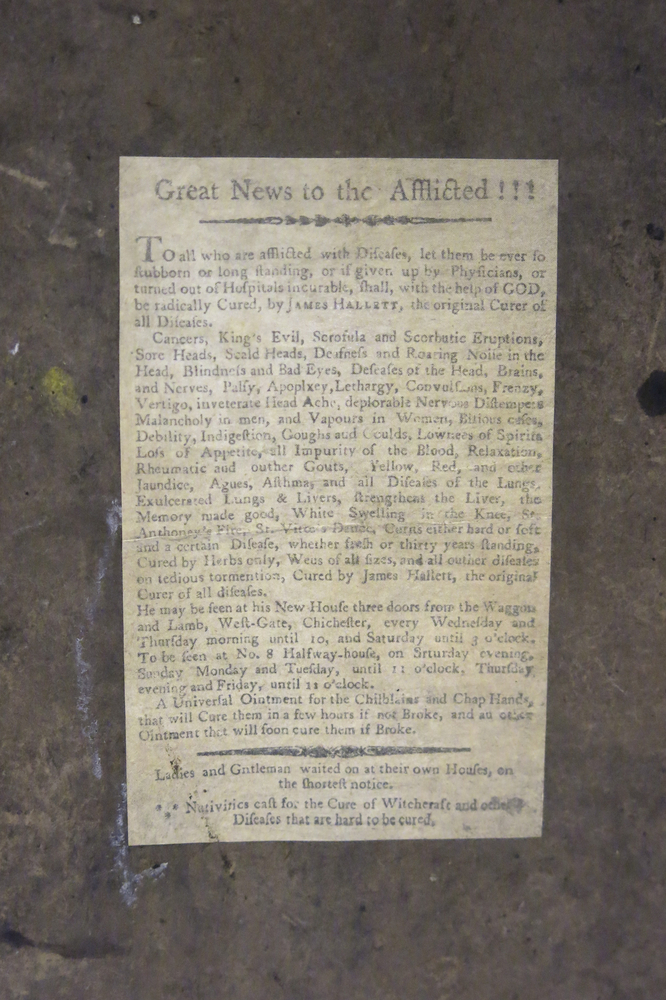 Great News to the Afflicted!!!
TO all who are afflicted with Diſeaſes, let them be ever ſo
ſtubborn or long ſtanding, or if given up by Phyſicians, or
turned out of Hoſpitals incurable, ſhall, with the help of GOD,
be radically Cured, by JAMES HALLETT, the original Curer of
all Diſeaſes.
Cancers, King's Evil, Scrofula and Scorbutic Eruptions,
Sore Heads, Scald Heads, Deafneſs and Roaring Noiſe in the
Head, Blindneſs and Bad Eyes, Deſeaſes of the Head, Brains,
and Nerves, Palſy, Apoplxey, Lethargy, Convulſions, Frenzy,
Vertigo, inveterate Head Ache, deplorable Nervous Diſtempers
Malancholy in men, and Vapours in Women, Bilious caſes,
Debility, Indigeſtion, Goughs and Coulds, Lownees of Spirits
Loſs of Appetite, all Impurity of the Blood, Relaxation,
Rheumatic and outher Gouts, Yellow, Red, and other
Jaundice, Agues, Aſthma, and all Diſeaſes of the Lungs,
Exulcerated Lungs & Livers, ſtrengthens the Liver, the
Memory made good, White Swelling in the Knee, St.
Anthoney's Fire, St. Vitce's Dance, Curns either hard or ſoft
and a certain Diſeaſe, whether freſh or thirty years ſtanding,
Cured by Herbs only, Wens of all ſizes, and all outher diſeaſes
on tedious tormention, Cured by James Hallett, the original
Curer of all diſeaſes.
He may be ſeen at his New Houſe three doors from the Waggon
and Lamb, Weſt-Gate, Chicheſter, every Wedneſday and
Thurſday morning until 10, and Saturday until 3 o'clock.
To be ſeen at No. 8 Halfway-houſe, on Srturday evening,
Sunday Monday and Tueſday, until 11 o'clock. Thurſday
evening and Friday, until 11 o'clock.
A Univerſal Ointment for the Chilblains and Chap Hands,
that will Cure them in a few hours if not Broke, and an other
Ointment that will ſoon cure them if Broke.
Ladies and Gntleman waited on at their own Houſes, on
the ſhorteſt notice.
* * Nativities caſt for the Cure of Witchcraft and other
Diſeaſes that are hard to be cured.